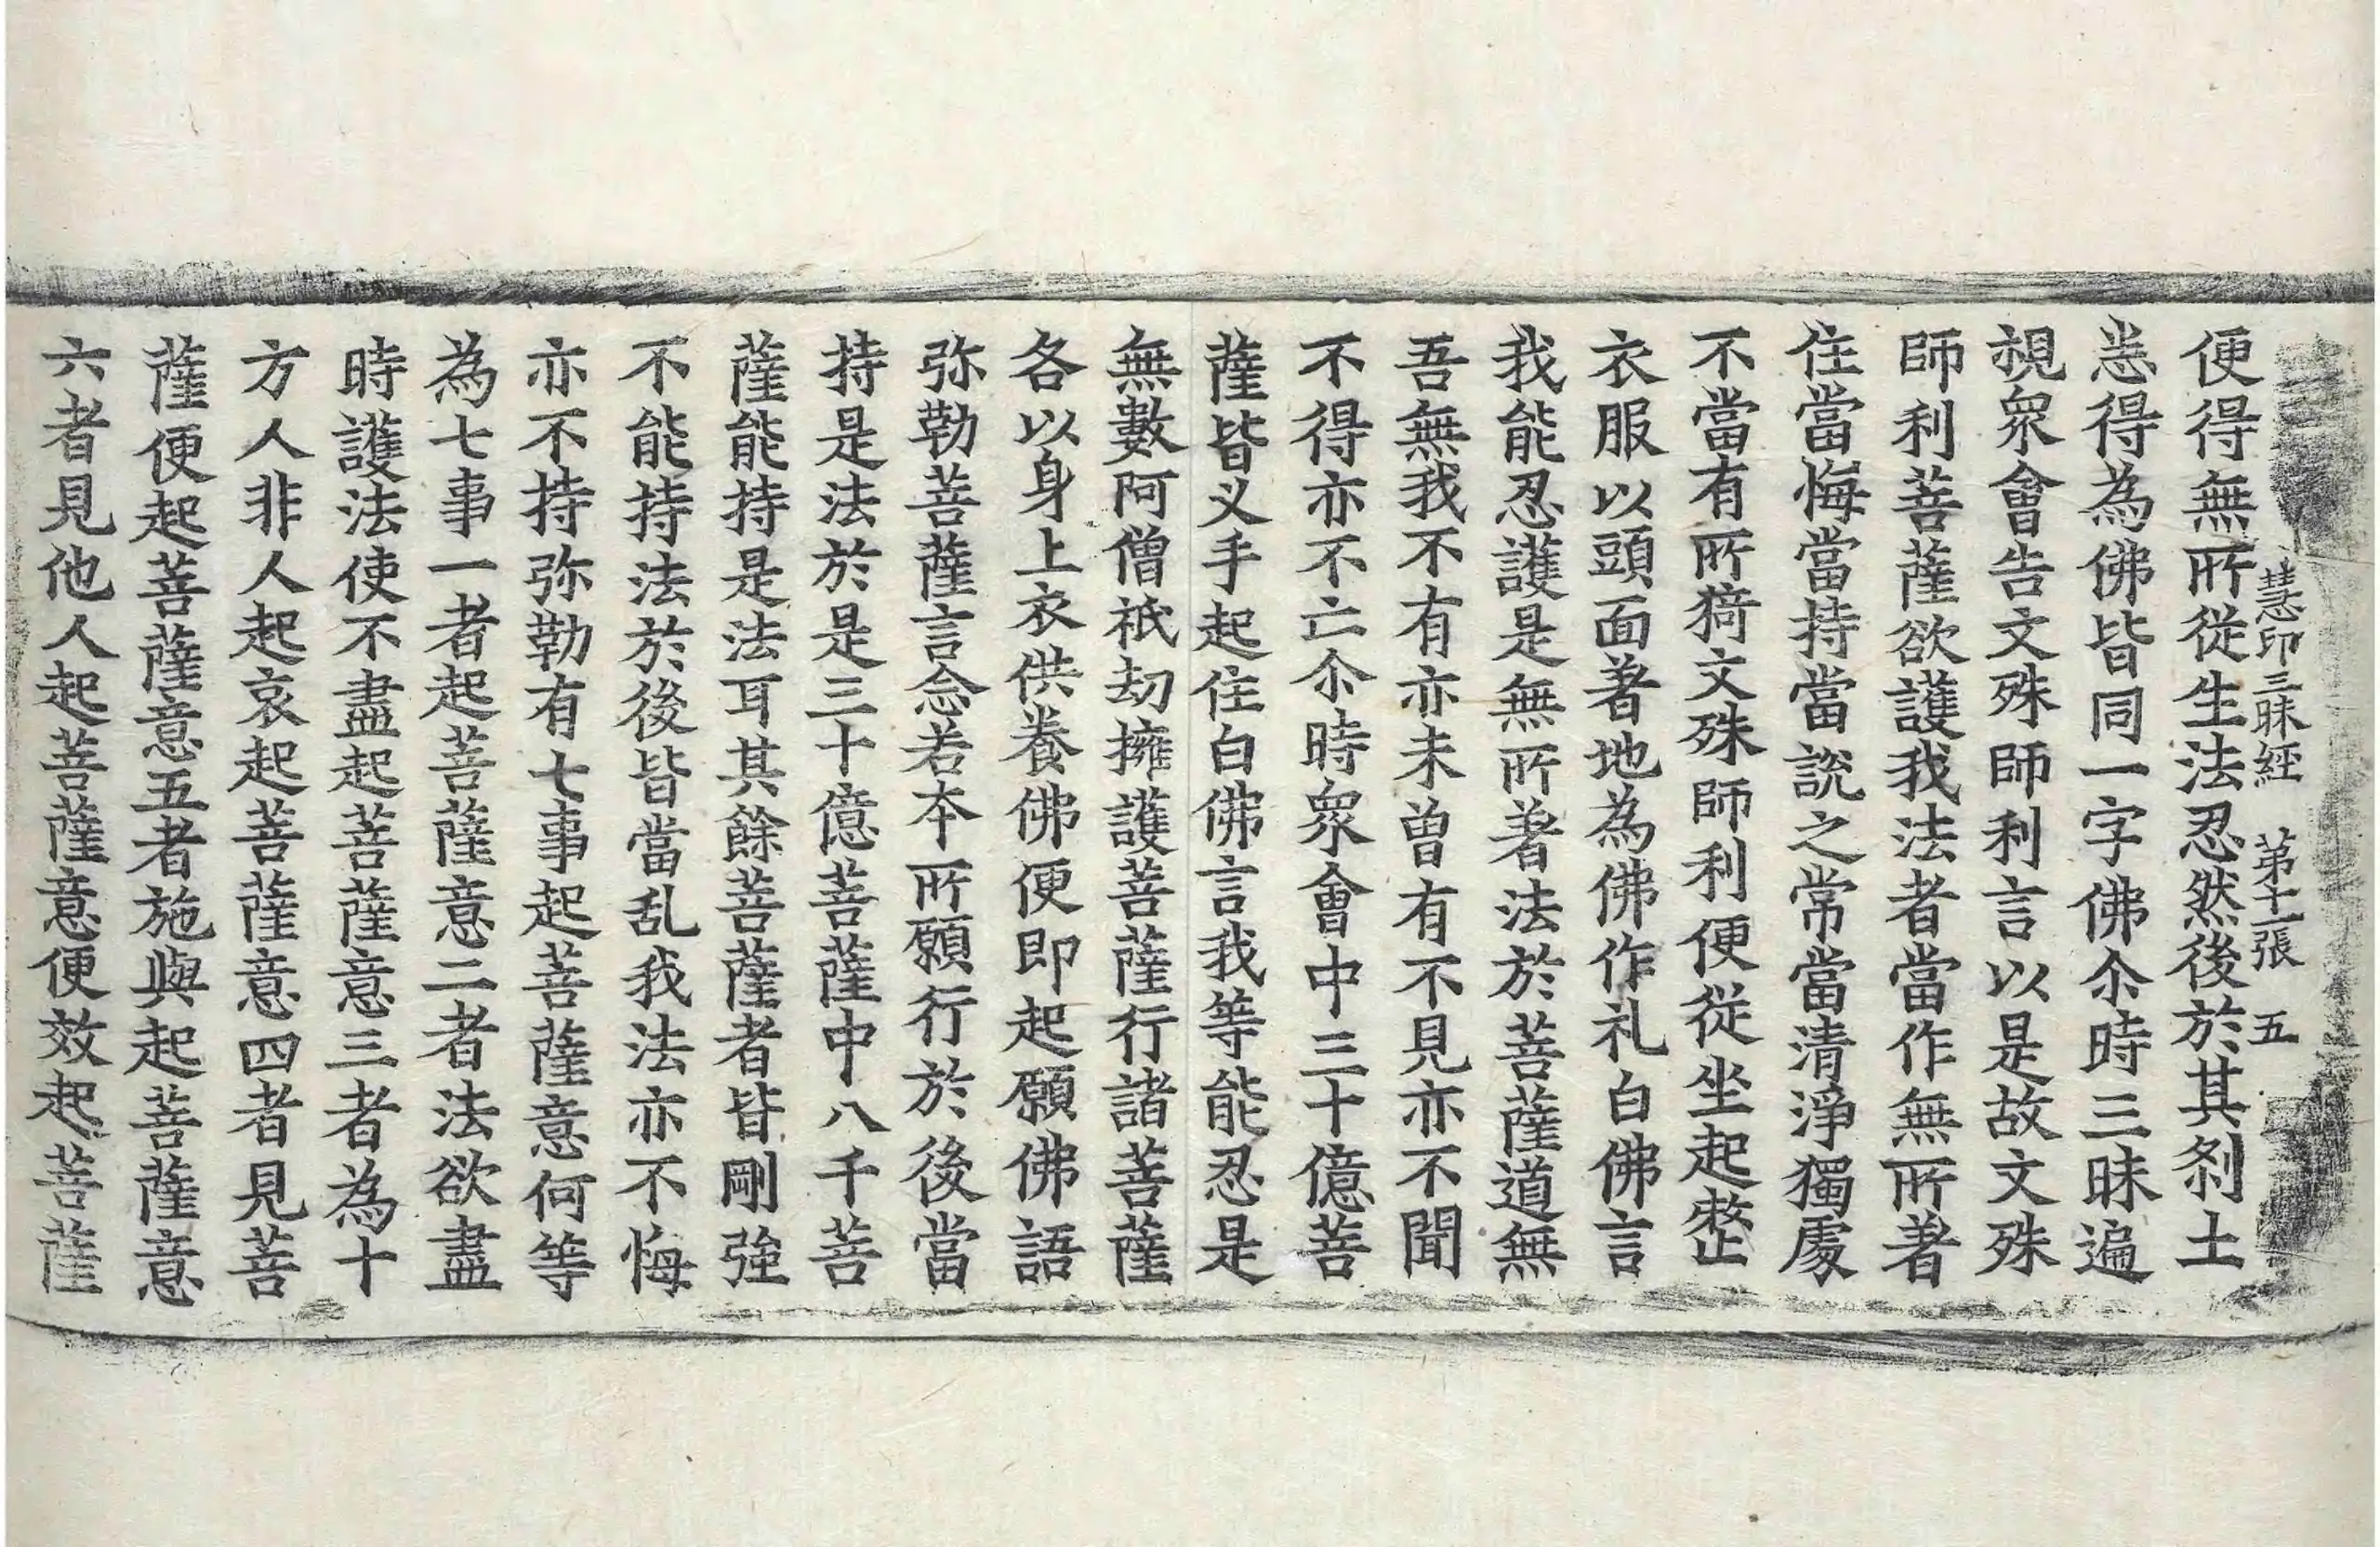 慧印三昧經　第十一張　五
便得無所從生法忍然後於其刹土
恙得為佛皆同一字佛尒時三昧遍
視眾會告文殊師利言以是故文殊
師利菩薩欲護我法者當作無所著
住當悔當持當說之常當清淨獨處
不當有所猗文殊師利便從坐起整
衣服以頭面著地為佛作礼白佛言
我能忍護是無所著法於菩薩道無
吾無我不有亦未曾有不見亦不聞
不得亦不亡尒時眾會中三十億菩
薩皆义手起住白佛言我等能忍是
無數阿僧祇劫擁護菩薩行諸菩薩
各以身上衣供養佛便即起願佛語
弥勒菩薩言念若本所願行於後當
持是法於是三十億菩薩中八千菩
薩能持是法耳其餘菩薩者皆剛強
不能持法於後皆當乱我法亦不悔
亦不持弥勒有七事起菩薩意何等
為七事一者起菩薩意二者法欲盡
時護法使不盡起菩薩意三者為十
方人非人起哀起菩薩意四者見菩
薩便起菩薩意五者施與起菩薩意
六者見他人起菩薩意便效起菩薩